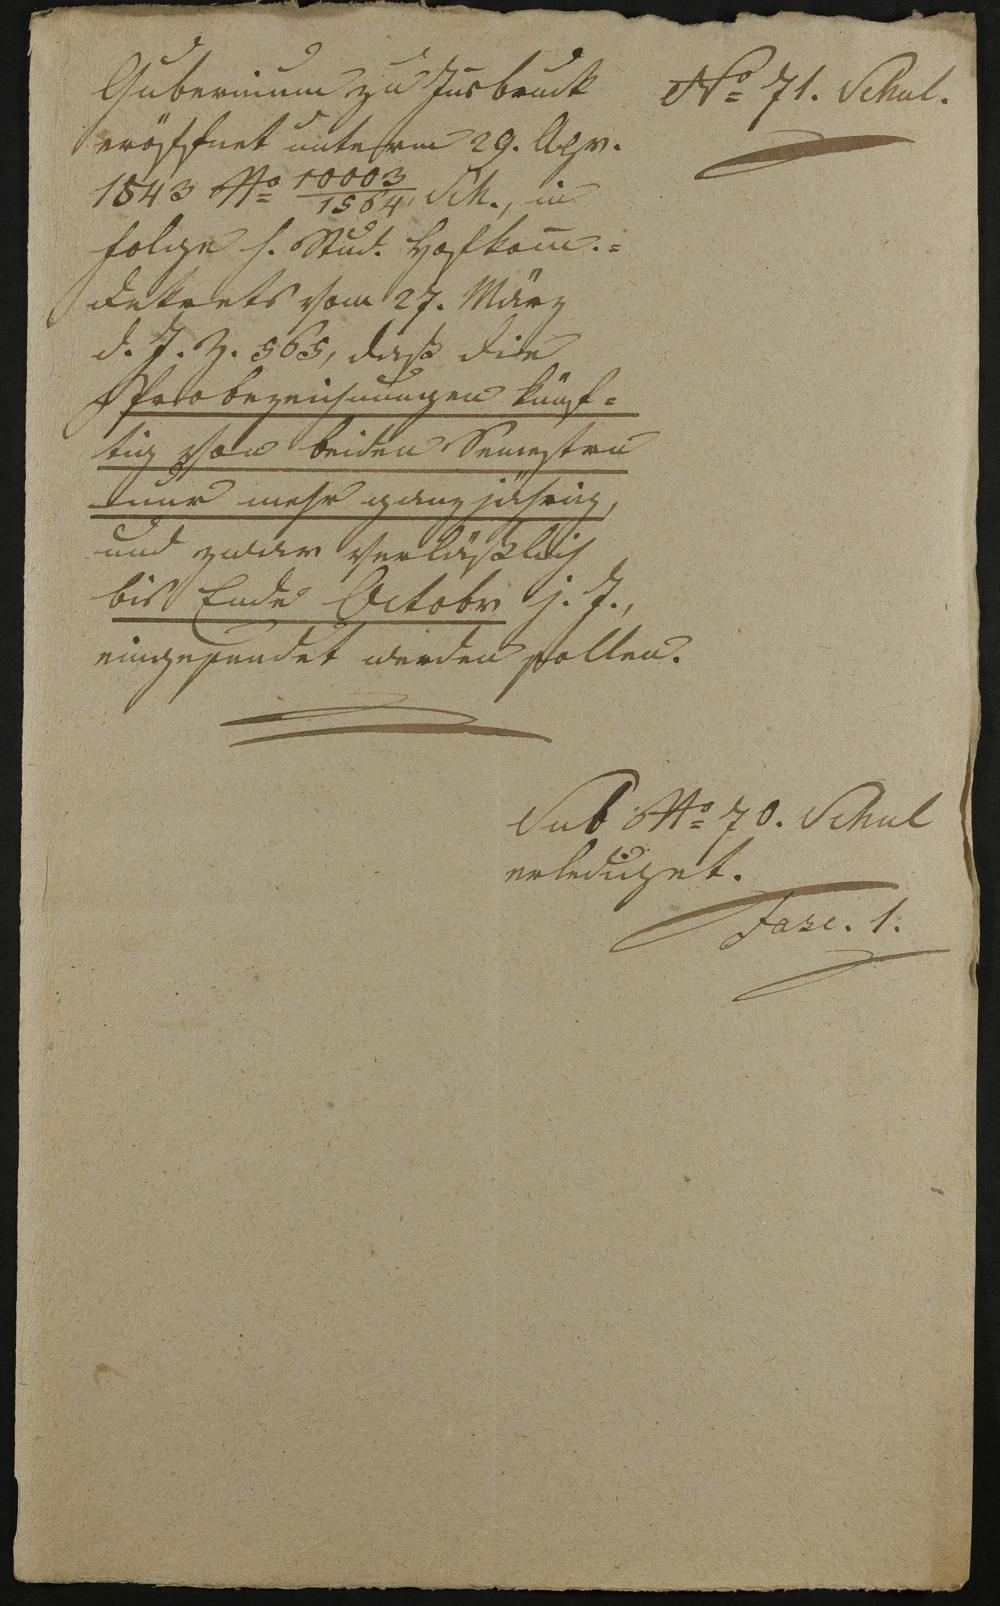 Gubernium zu Insbruck
eröffnet unterm 29. Apr.
1843 No 10003/1564 Sch., in
folge h. Stud. Hofkom̅.=
dekrets vom 27. März
d. J. Z. 565, daß die
Probezeichnungen künf=
tig von beiden Semestern
nur mehr ganzjährig,
und zwar verläßlich
bis Ende Octobr j. J.,
eingesendet werden sollen.
No 71. Schul.
Sub No 70. Schul
erlediget.
Fasc. 1.